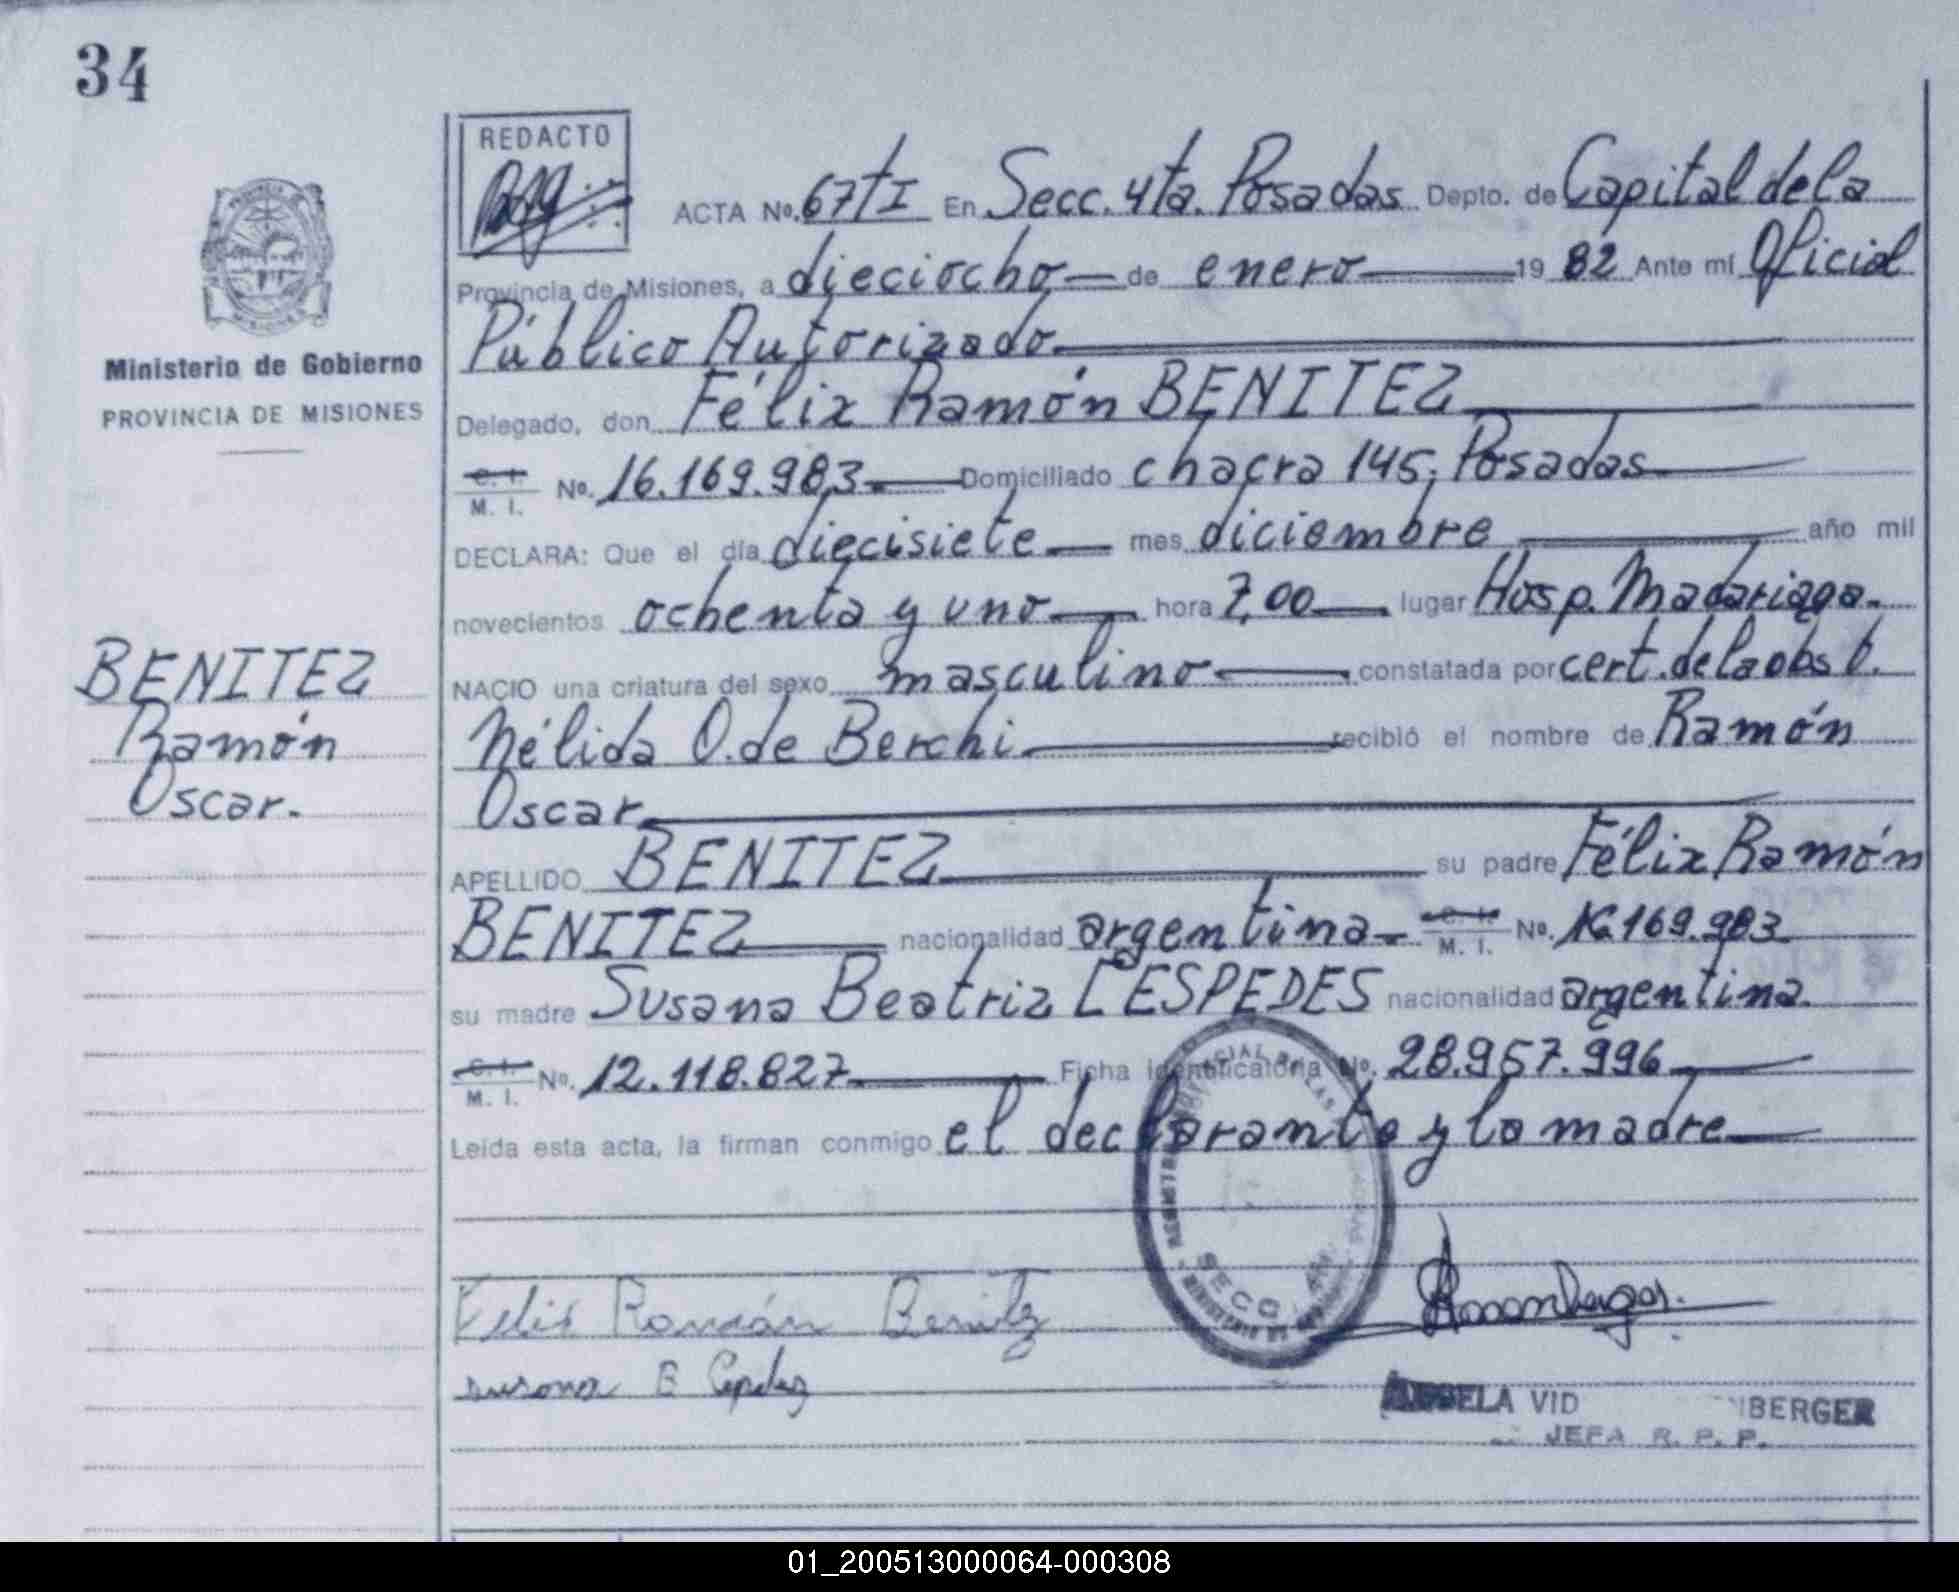 34
REDACTO
ACTA No. 67 tI En Secc. 4ta. Posadas Depto. de Capital de la
Provincia de Misiones, a dieciocho de enero 19 82 Ante mí Oficial
Público Autorizado
Delegado, don Félix Ramón BENITEZ
C. I. M. I. No. 16.169.983 Domiciliado chacra 145, Posadas
DECLARA: Que el día diecisiete mes diciembre año mil
novecientos ochenta y uno hora 7,00 lugar Hosp. Madariaga.
NACIO una criatura del sexo masculino constatada por cert. de la obst.
Nélida O. de Berchi recibió el nombre de Ramón
Oscar
APELLIDO BENITEZ su padre Félix Ramón
BENITEZ nacionalidad argentina C. I. M. I. No. 16.169.983
su madre Susana Beatriz CESPEDES nacionalidad argentina.
C. I. M. I. No. 12.118.827 Ficha identificatoria No. 28.957.996
Leída esta acta, la firman conmigo el declarante y la madre
Ministerio de Gobierno
PROVINCIA DE MISIONES
BENITEZ
Ramón
Oscar.
SECC. 4ta.
Felix Ramón Benitez
susana B
VID
BERGER
JEFA R. P. P.
01_200513000064-000308